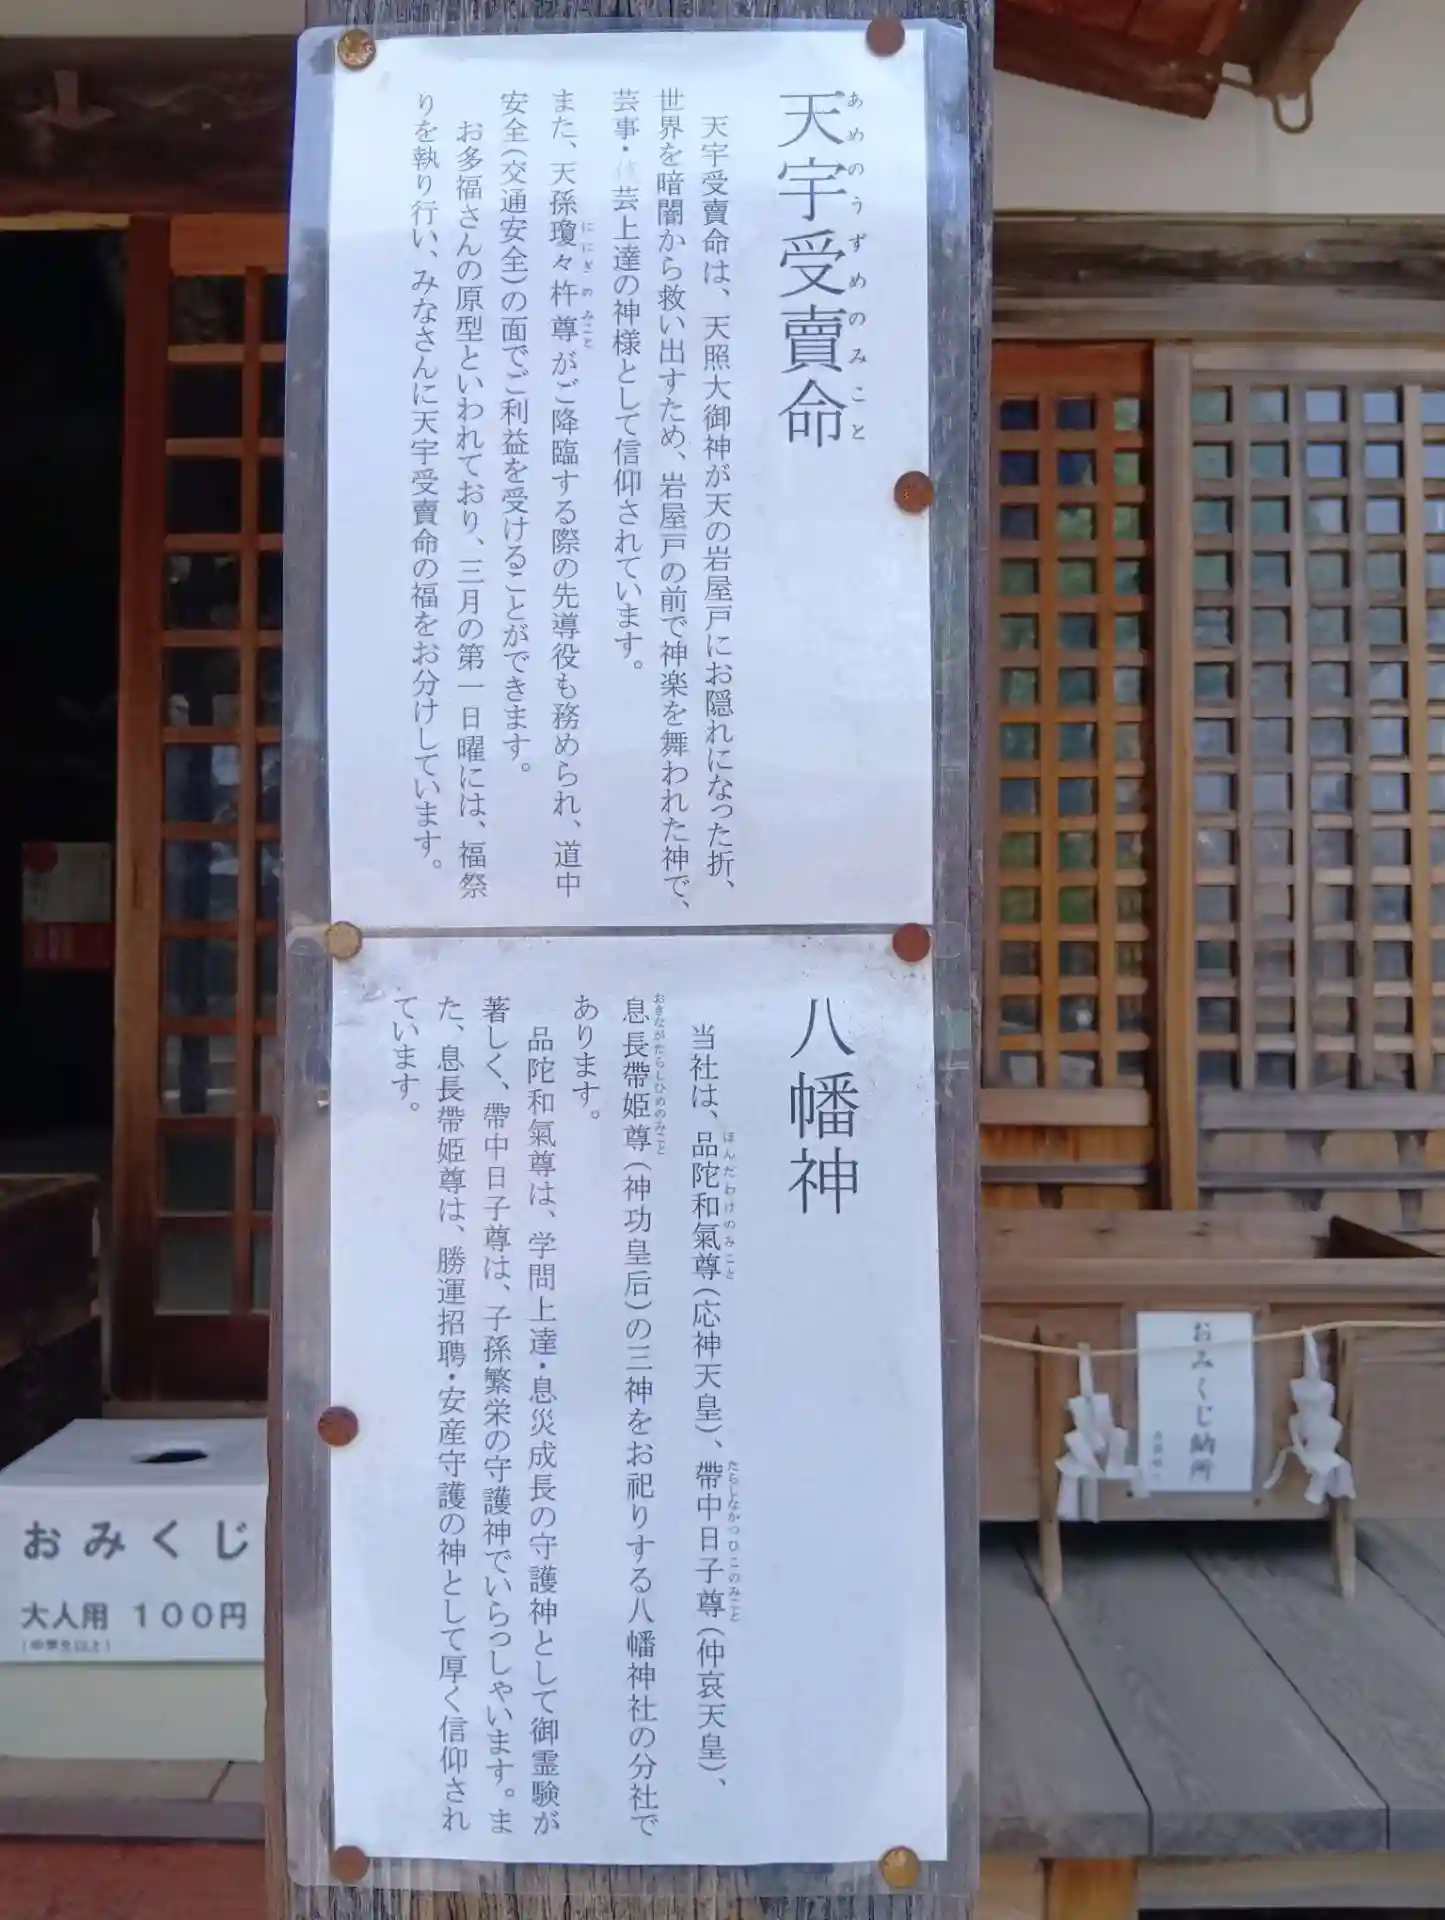 天宇受賣命
あめのうずめのみこと
天宇受賣命は、天照大御神が天の岩屋戸にお隠れになった折、
世界を暗闇から救い出すため、岩屋戸の前で神楽を舞われた神で、
芸事・ 芸上達の神様として信仰されています。
また、天孫瓊々杵尊がご降臨する際の先導役も務められ、道中
ににぎのみこと
安全(交通安全)の面でご利益を受けることができます。
お多福さんの原型といわれており、三月の第一日曜には、福祭
りを執り行い、みなさんに天宇受賣命の福をお分けしています。
八幡神
当社は、品陀和氣尊(応神天皇)、帶中日子尊(仲哀天皇)、
ほんだわけのみこと
たらしなかつひこのみこと
息長帶姫尊(神功皇后)の三神をお祀りする八幡神社の分社で
おきながたらしひめのみこと
あります。
品陀和氣尊は、学問上達・息災成長の守護神として御霊験が
著しく、帶中日子尊は、子孫繁栄の守護神でいらっしゃいます。ま
た、息長帶姫尊は、勝運招聘・安産守護の神として厚く信仰され
ています。
おみくじ
大人用 100円
(中学生以上)
おみくじ納所